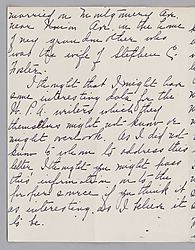 married on Montgomery Ave.
near Union Ave. in the home
of my grandmother who
was the wife of Stephen C.
Foster.
I thought that I might have
some interesting data for the
W. P. A. writers which they
themselves might not know or
might overlook. As I did not
know to whom to address this
letter I thought you might pass
this information on to the
proper source if you think it
as interesting as I believe it
to be.